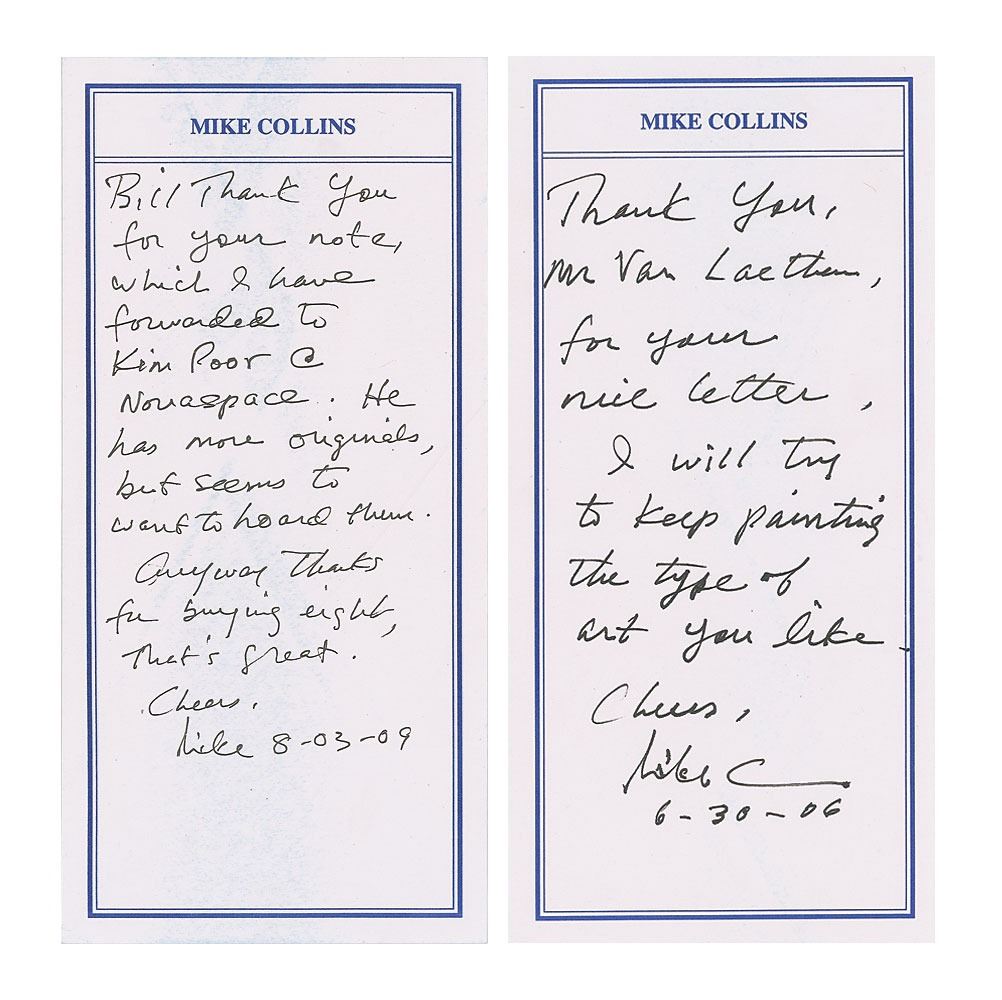 MIKE COLLINS
Bill Thank You
for your note,
which I have
forwarded to
Kim Poor @
Novaspace. He
has more originals,
but seems to
want to hoard them.
Anyway Thanks
for buying eight,
That's great.
Cheers,
Mike 8-03-09
MIKE COLLINS
Thank You,
Mr Van Laethem,
for your
nice letter,
I will try
to keep painting
the type of
art you like.
Cheers,
Mike C
6-30-06